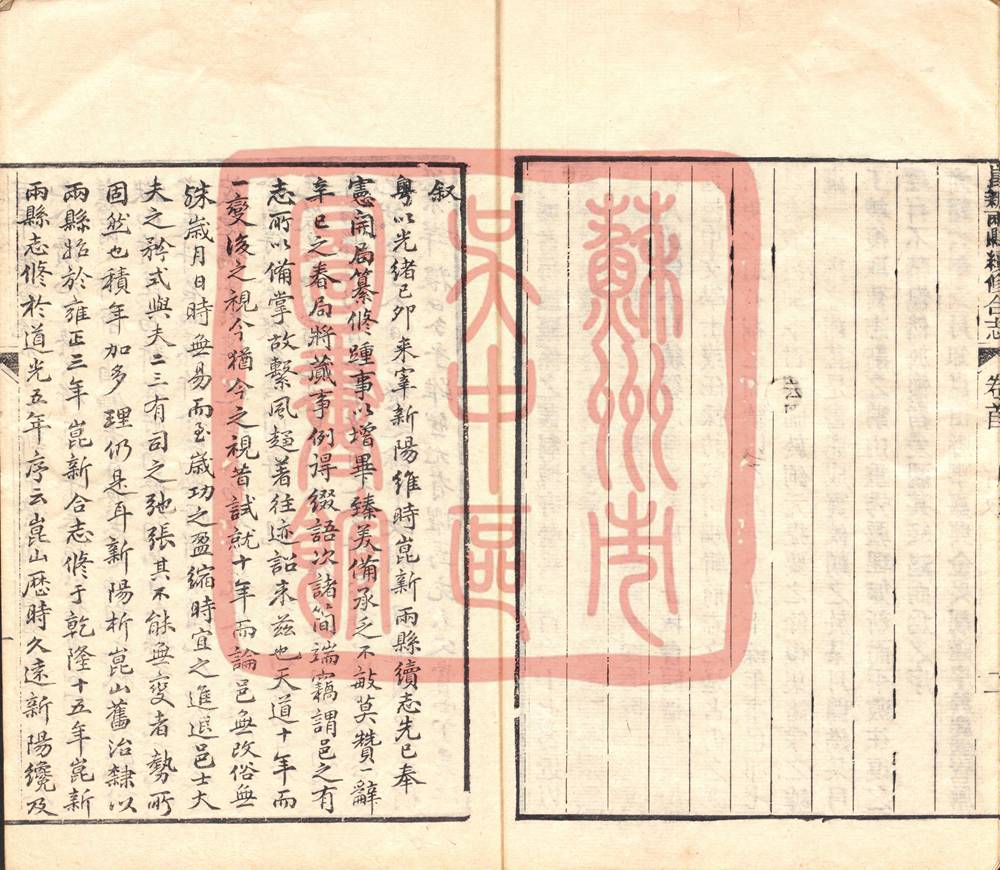 昆新兩縣續修合志
卷首
二
叙
粵以光緒己卯来宰新陽維時崑新兩縣續志先已奉
憲開局纂修踵事以增畢臻美備承乏不敏莫贊一辭
辛巳之春局將蕆事例得綴語次諸簡端竊謂邑之有
志所以備掌故繫風趨著往迹詔来兹也天道十年而
一變後之視今猶今之視昔試就十年而論邑無改俗無
殊歲月日時無易而至歲功之盈縮時宜之進退邑士大
夫之矜式與夫二三有司之弛張其不能無變者勢所
固然也積年加多理仍是耳新陽析崑山舊治隸以
兩縣始於雍正三年崑新合志修于乾隆十五年崑新
兩縣志修於道光五年序云崑山歷時久遠新陽纔及
蘇州市
吴中區
圖書館